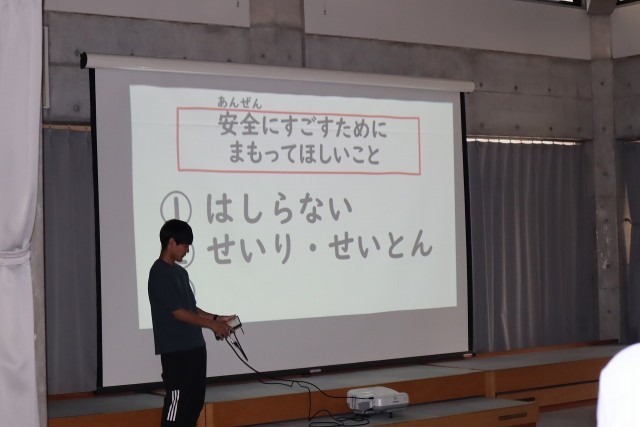 あんぜん
安全にすごすために
まもってほしいこと
① はしらない
せいり・せいとん